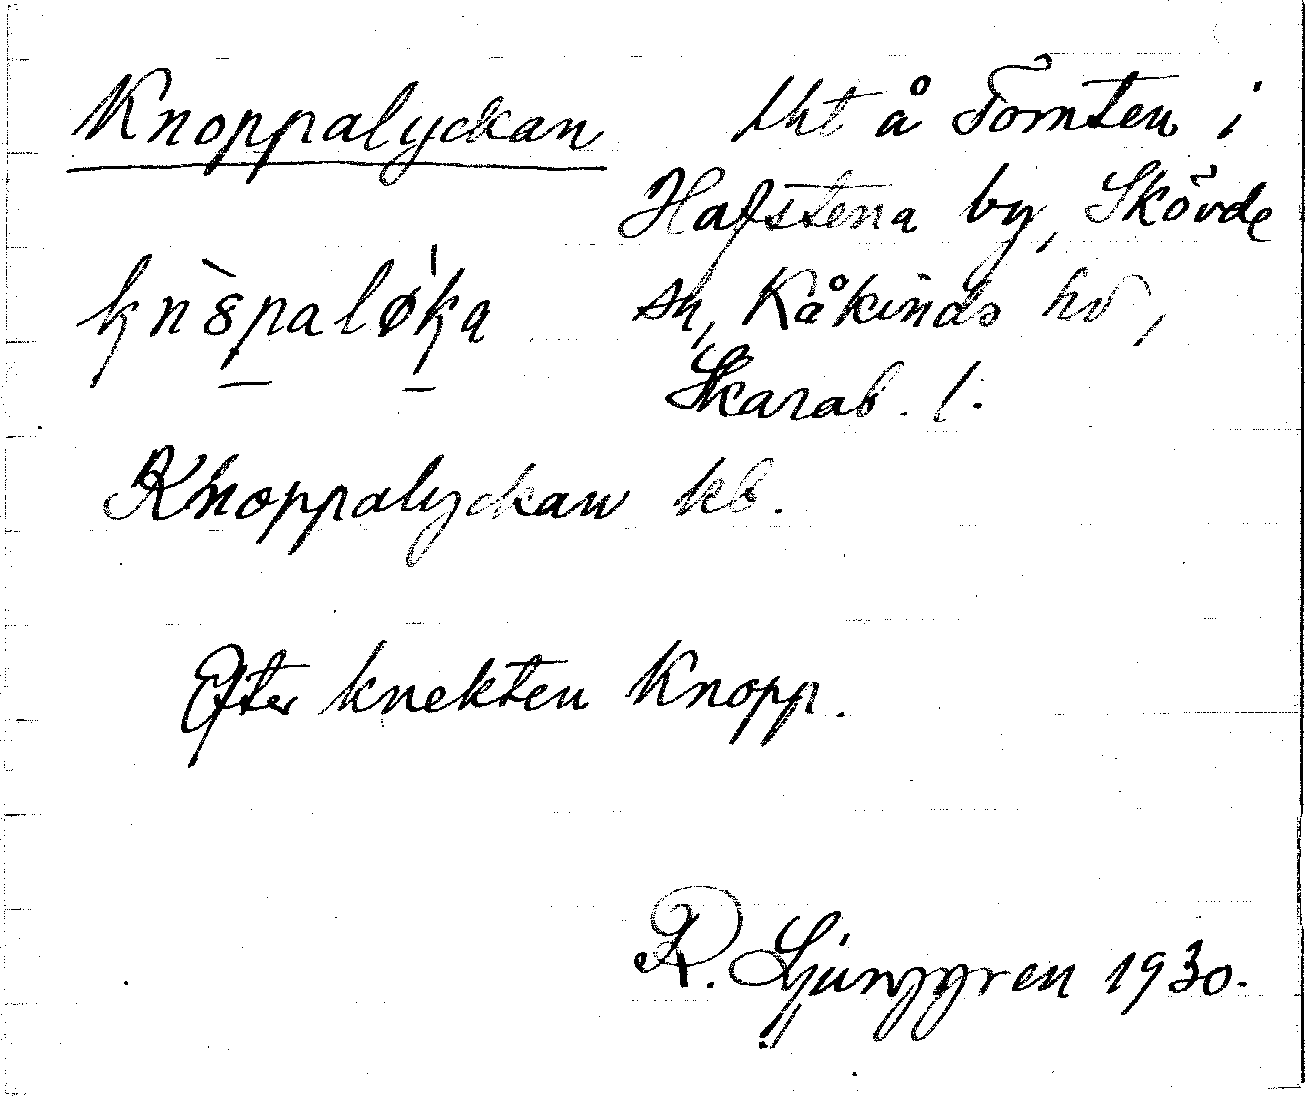 Knoppalyckan
lht å Tomten i
Hafstena by, Skövde
sn, Kåkinds hd,
Skarab. l.
Knoppalyckan kb.
Efter knekten Knopp.
R. Ljunggren 1930.